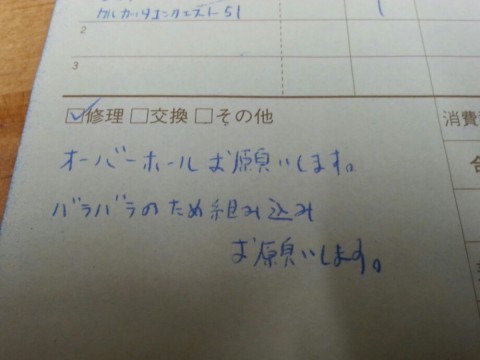 カルカッタコンクエスト51 1
2
3
修理 交換 その他 消費
オーバーホールお願いします。
バラバラのため組み込み
お願いします。